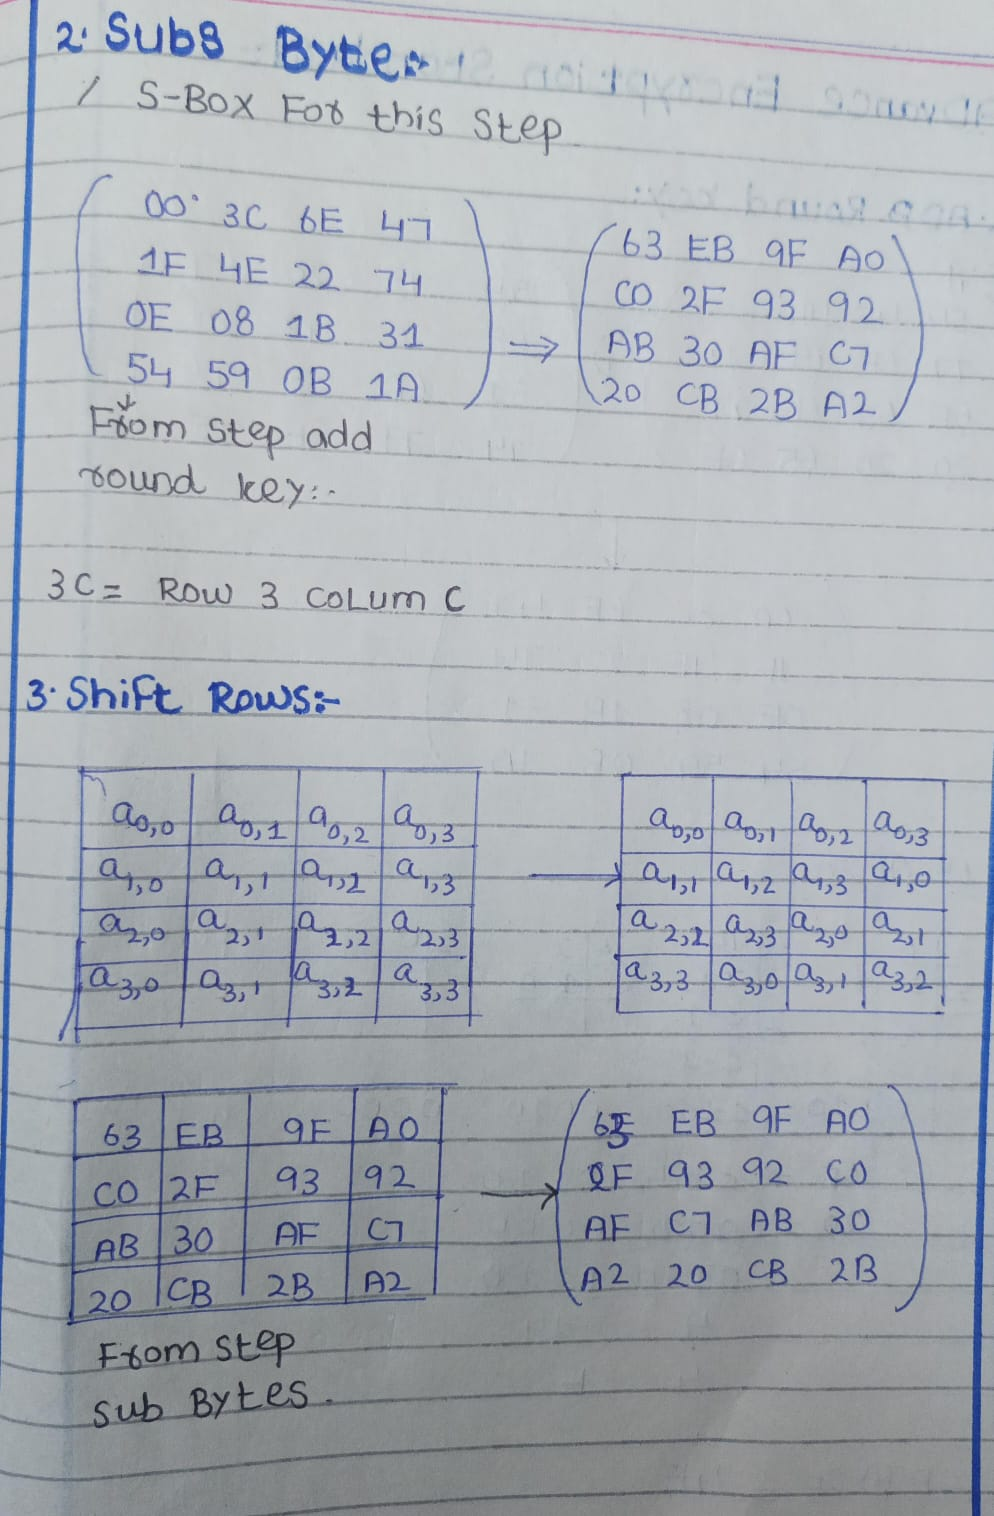 2. Subs Byte:-
S-Box For this Step
00 3C 6E 47
1F 4E 22 74
0E 08 1B 31
54 59 0B 1A
⇒
63 EB 9F A0
C0 2F 93 92
AB 30 AF C7
20 CB 2B A2
From step add
round key:-
3C = Row 3 Colum C
3. Shift Rows:-
a0,0 a0,1 a0,2 a0,3
a1,0 a1,1 a1,2 a1,3
a2,0 a2,1 a2,2 a2,3
a3,0 a3,1 a3,2 a3,3
→
a0,0 a0,1 a0,2 a0,3
a1,1 a1,2 a1,3 a1,0
a2,2 a2,3 a2,0 a2,1
a3,3 a3,0 a3,1 a3,2
63 EB 9F A0
C0 2F 93 92
AB 30 AF C7
20 CB 2B A2
→
EB 9F A0
2F 93 92 C0
AF C7 AB 30
A2 20 CB 2B
From step
Sub Bytes.